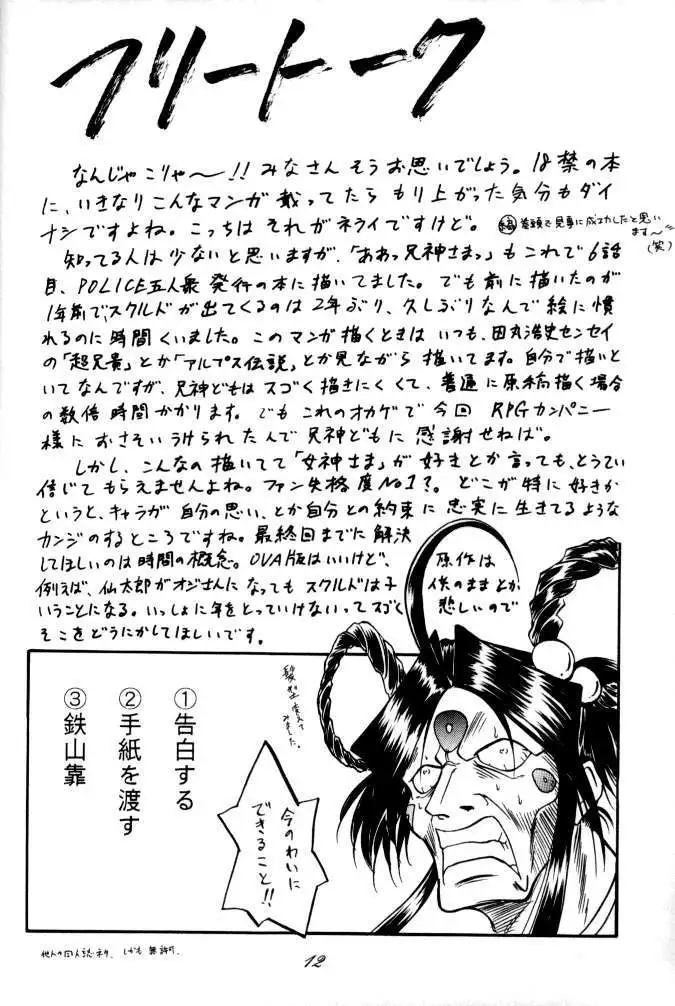 フリートーク
なんじゃこりゃ〜!!みなさんそうお思いでしょう。18禁の本
に、いきなりこんなマンガ載ってたらもり上がった気分もダイ
ナシですよね。こっちはそれがネライですけど。
編 巻頭で見事に成功したと思い
ます〜
(笑)
知ってる人は少ないと思いますが、「ああっ兄神さまっ」もこれで6話
目、POLICE五人衆発行の本に描いてました。でも前に描いたのが
1年前で、スクルドが出てくるのは2年ぶり、久しぶりなんで絵に慣
れるのに時間くいました。このマンガ描くときはいつも、田丸浩史センセイ
の「超兄貴」とか「アルプス伝説」とか見ながら描いてます。自分で描いと
いてなんですが、兄神どもはスゴく描きにくくて、普通に原稿描く場合
の数倍時間かかります。でもこれのオカゲで今回RPGカンパニー
様におさそいうけられたんで兄神どもに感謝せねば。
しかし、こんなの描いてて「女神さま」が好きとか言っても、とうてい
信じてもらえませんよね。ファン失格度No1?。どこが特に好きか
というと、キャラが自分の思い、とか自分との約束に忠実に生きてるような
カンジのするところですね。最終回までに解決
してほしいのは時間の概念。OVA版はいいけど、原作は
例えば、仙太郎がオジさんになってもスクルドは子供のままとか
いうことになる。いっしょに年をとっていけないってスゴく悲しいので
そこをどうにかしてほしいです。
髪型変えて
みました。
①告白する
②手紙を渡す
③鉄山靠
今のわいに
できること!!
他人の同人誌ネタ、しかも無許可。
12